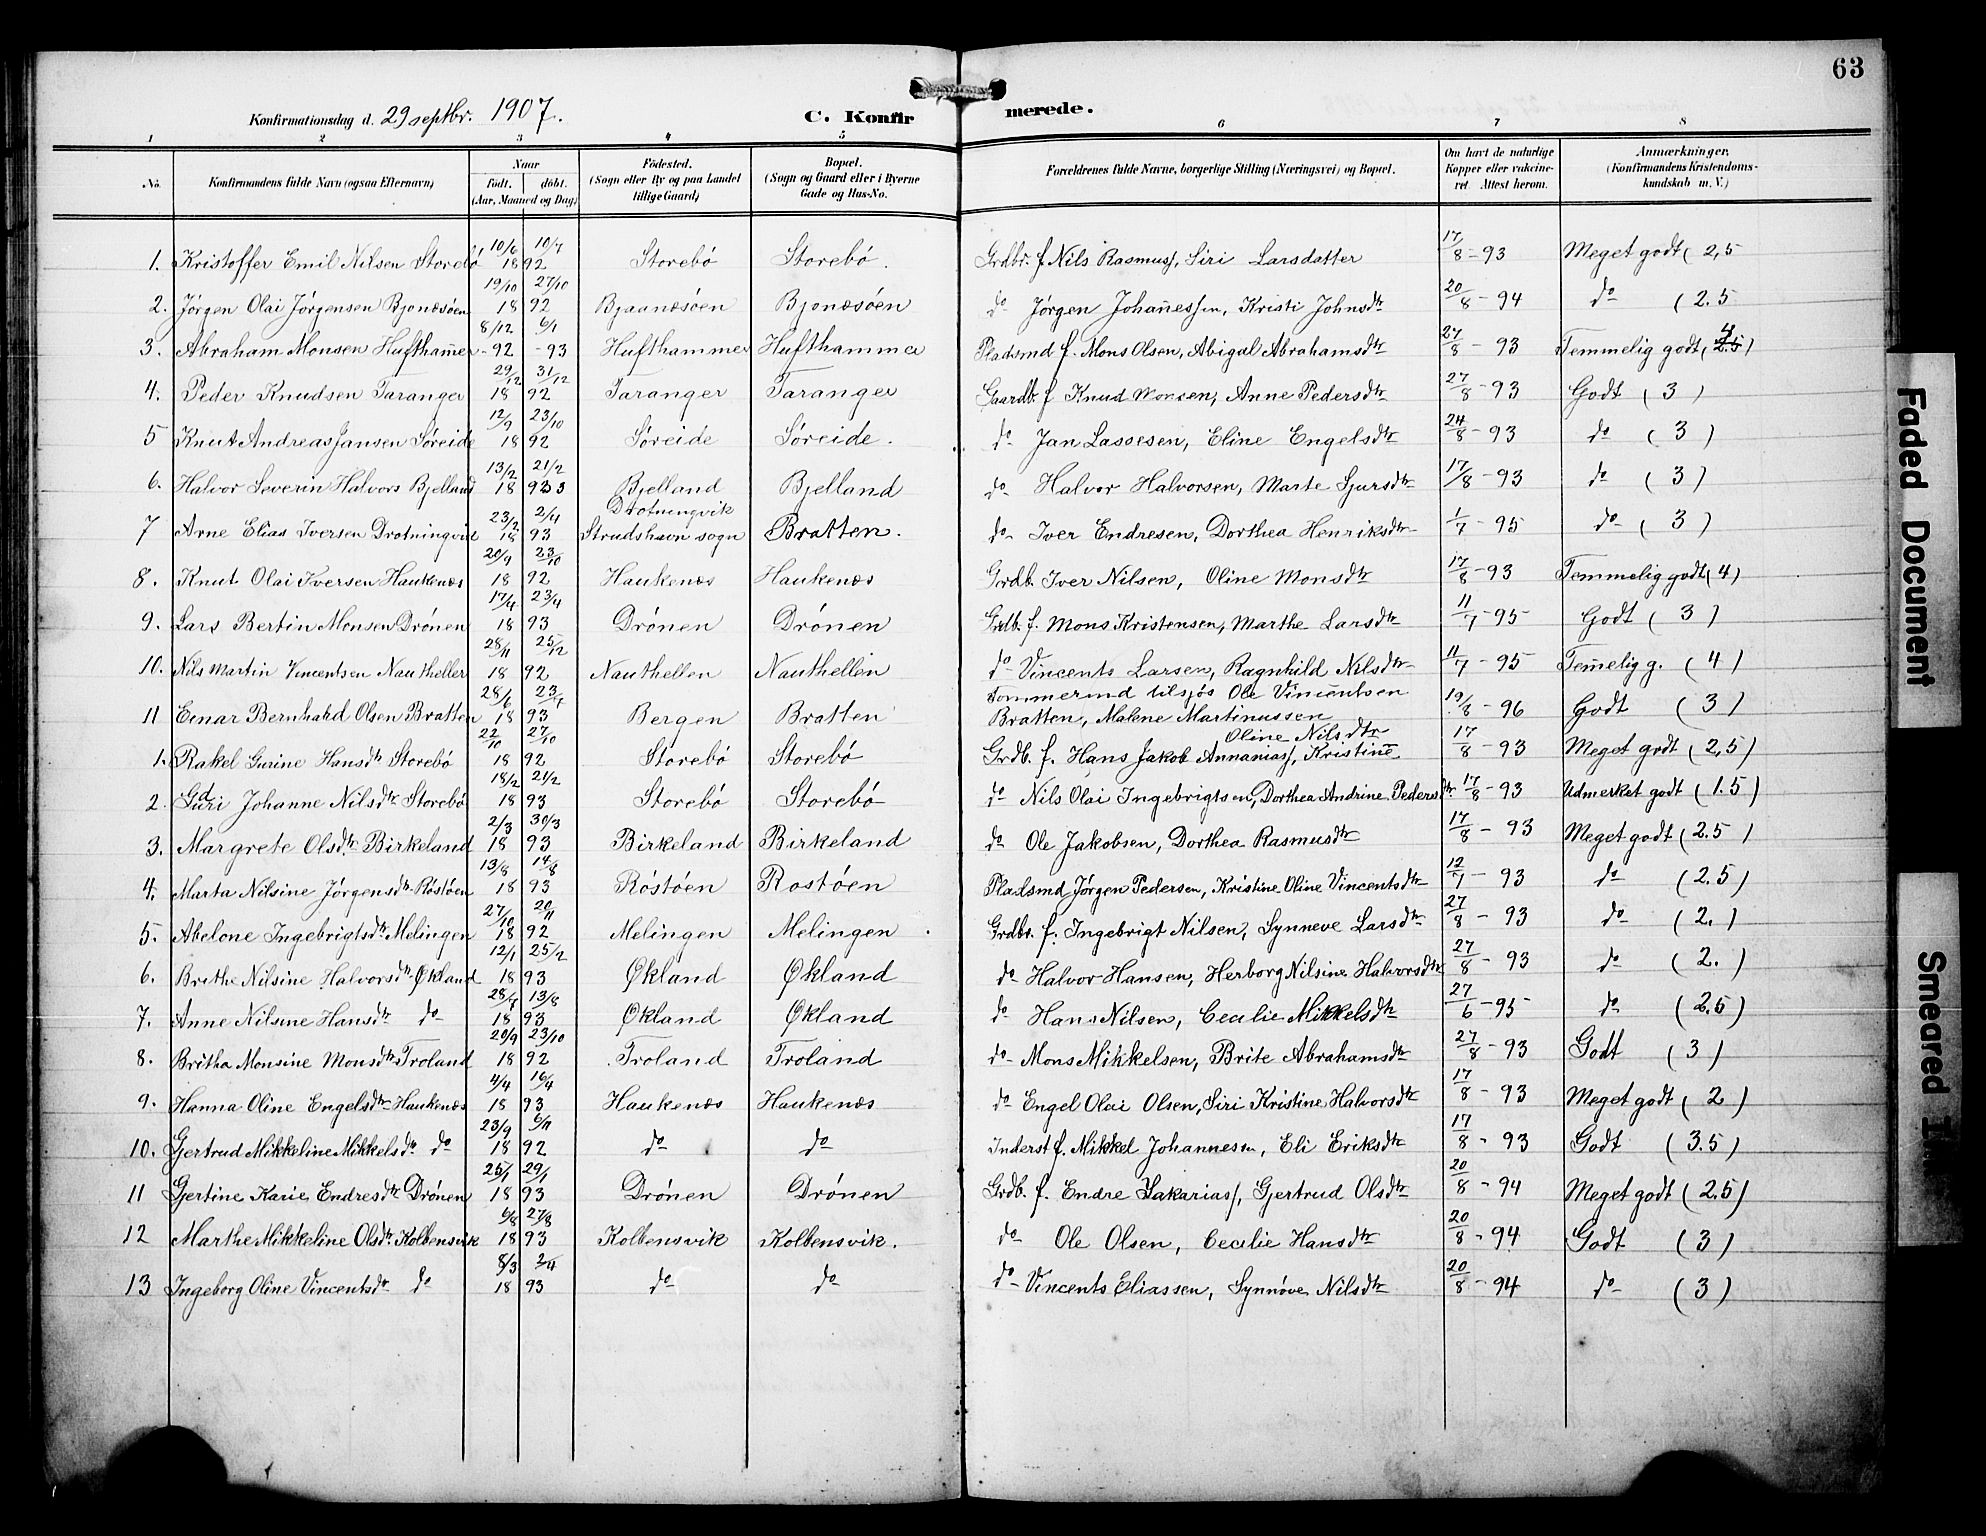 63
Konfirmationsdag d. 29 septbr. 1907.
C. Konfirmerede.
1 2 3 4 5 6 7 8
No. Konfirmandens fulde Navn (ogsaa Efternavn) Naar født. døbt. (Aar, Maaned og Dag) Fødested. (Sogn eller By og paa Landet tillige Gaard) Bopæl. (Sogn og Gaard eller i Byerne Gade og Hus-No. Forældrenes fulde Navne, borgerlige Stilling (Næringsvei) og Bopæl. Om havt de naturlige Kopper eller vakcineret. Attest herom. Anmærkninger. (Konfirmandens Kristendomskundskab m. V.)
1. Kristoffer Emil Nilsen Storebö 10/6 10/7 1892 Storebö Storebö. Grdbr. f. Nils Rasmuss, Siri Larsdatter 17/8 - 93 Meget godt ( 2,5
2. Jörgen Olai Jörgensen Bjonæsöen 19/10 27/10 1892 Bjaanæsöen Bjonæsöen do Jörgen Johannessen, Kristi Johnsdtr 20/8 - 94 do ( 2.5
3. Abraham Monsen Hufthamer 8/12 6/1 - 92 - 93 Hufthammer Hufthammer Pladsmd f. Mons Olsen, Abigal Abrahamsdtr 27/8 - 93 Temmelig godt ( 2.5 ) 4
4. Peder Knudsen Taranger 29/12 31/12 1892 Taranger Taranger Gaardb. f Knud Monsen, Anne Pedersdtr 27/8 - 93 Godt ( 3 )
5 Knut Andreas Jansen Söreide 12/9 23/10 1892 Söreide Söreide. do Jan Lassesen, Eline Engelsdtr 24/8 - 93 do ( 3 )
6. Halvor Severin Halvors Bjelland 13/2 21/2 1893 Bjelland Bjelland do Halvor Halvorsen, Marte Sjursdtr 17/8 - 93 do ( 3 )
7 Arne Elias Iversen Drotningvik 23/2 2/4 1893 Drotningvik Strudshavn sogn Bratten. do Iver Endresen, Dorthea Henriksdtr 1/7 - 95 do ( 3 )
8. Knut Olai Iversen Haukenæs 20/9 23/10 1892 Haukenæs Haukenæs Grdb. Iver Nilsen, Oline Monsdtr 17/8 - 93 Temmelig godt ( 4 )
9. Lars Bertin Monsen Drönen 17/4 23/4 1893 Drönen Drönen Grdb. f. Mons Kristensen, Marthe Larsdtr 11/7 - 95 Godt ( 3 )
10. Nils Martin Vincentsen Nautheller 28/11 25/12 1892 Nauthellen Nauthellen do Vincents Larsen, Ragnhild Nilsdtr 11/7 - 95 Temelig g. ( 4 )
11 Einar Bernhard Olsen Bratten 28/6 23/7 1893 Bergen Bratten Tommermd tilsjös Ole Vincentsen Bratten, Malene Martinussen 19/8 - 96 Godt ( 3 )
1. Rakel Gurine Hansdtr Storebö 22/10 27/10 1892 Storebö Storebö Grdb. f. Hans Jakob Annaniass, Kristine Oline Nilsdtr 17/8 - 93 Meget godt ( 2,5 )
2. Guri Johanne Nilsdtr Storebö 18/2 21/2 1893 Storebö Storebö do Nils Olai Ingebrigtsen, Dorthea Andrine Pedersdtr 17/8 - 93 Udmerket godt ( 1.5 )
3. Margrete Olsdtr Birkeland 2/3 30/3 1893 Birkeland Birkeland do Ole Jakobsen, Dorthea Rasmusdtr 17/8 - 93 Meget godt ( 2.5 )
4. Marta Nilsine Jörgensdtr Röstöen 13/8 14/8 1893 Röstöen Rostöen Pladsmd Jörgen Pedersen, Kristine Oline Vincentsdtr 12/1 - 93 do ( 2.5 )
5. Abelone Ingebrigtsdtr Melingen 27/10 20/11 1892 Melingen Melingen. Grdbr. f. Ingebrigt Nilsen, Synneve Larsdtr 27/8 - 93 do ( 2. )
6. Brithe Nilsine Halvorsdtr Økland 12/1 25/2 1893 Økland Økland do Halvor Hansen, Herborg Nilsine Halvorsdtr 27/8 - 93 do ( 2. )
7. Anne Nilsine Hansdtr do 28/7 13/8 1893 Økland Økland do Hans Nilsen, Cecilie Mikkelsdtr 27/6 - 95 do ( 2.5 )
8. Britha Monsine Monsdtr Troland 20/9 23/10 1892 Troland Troland do Mons Mikkelsen, Brite Abrahamsdtr 27/8 - 93 Godt ( 3 )
9. Hanna Oline Engelsdtr Haukenæs 4/4 16/4 1893 Haukenæs Haukenæs do Engel Olai Olsen, Siri Kristine Halvorsdtr 17/8 - 93 Meget godt ( 2 )
10. Gertrud Mikkeline Mikkelsdtr do 23/9 6/11 1892 do do Inderst f. Mikkel Johannessen, Eli Eriksdtr 17/8 - 93 Godt ( 3.5 )
11 Gjertine Karie Endresdtr Drönen 25/1 29/1 1893 Drönen Drönen Grdb. f. Endre Sakariass, Gjertrud Olsdtr 20/8 - 94 Meget godt ( 2.5 )
12 Marthe Mikkeline Olsdtr. Kolbensvik 6/8 27/8 1893 Kolbensvik Kolbensvik. do Ole Olsen, Cecilie Hansdtr 20/8 - 94 Godt ( 3 )
13 Ingeborg Oline Vincentsdtr do 8/3 2/4 1893 do do do Vincents Eliassen, Synnøve Nilsdtr 20/8 - 94 do ( 3 )
Faded Document
Smeared